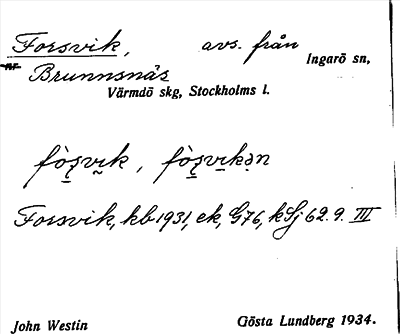 Forsvik, avs. från
Ingarö sn,
nr Brunnsnäs
Värmdö skg, Stockholms l.
Forsvik, kb 1931, ek, G76, kSj 62.9. III
John Westin Gösta Lundberg 1934.